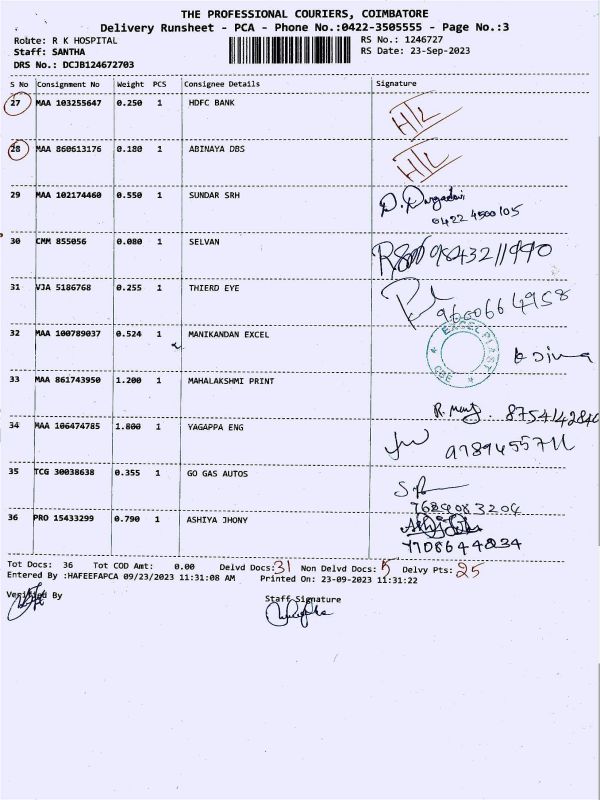 THE PROFESSIONAL COURIERS, COIMBATORE
Delivery Runsheet - PCA - Phone No.:0422-3505555 - Page No.:3
Route: R K HOSPITAL RS No.: 1246727
Staff: SANTHA RS Date: 23-Sep-2023
DRS No.: DCJB124672703
S No Consignment No Weight PCS Consignee Details Signature
27 MAA 103255647 0.250 1 HDFC BANK H/L
28 MAA 860613176 0.180 1 ABINAYA DBS H/L
29 MAA 102174460 0.550 1 SUNDAR SRH D. Durgadevi
0422 4500105
30 CMM 855056 0.080 1 SELVAN 9843211990
31 VJA 5186768 0.255 1 THIERD EYE
9600664958
32 MAA 100789037 0.524 1 MANIKANDAN EXCEL EXCEL PLAST CBE
33 MAA 861743950 1.200 1 MAHALAKSHMI PRINT
34 MAA 106474785 1.800 1 YAGAPPA ENG
35 TCG 30038638 0.355 1 GO GAS AUTOS
36 PRO 15433299 0.790 1 ASHIYA JHONY
Tot Docs: 36 Tot COD Amt: 0.00 Delvd Docs: 31 Non Delvd Docs: 5 Delvy Pts: 25
Entered By :HAFEEFAPCA 09/23/2023 11:31:08 AM Printed On: 23-09-2023 11:31:22
Verified By Staff Signature